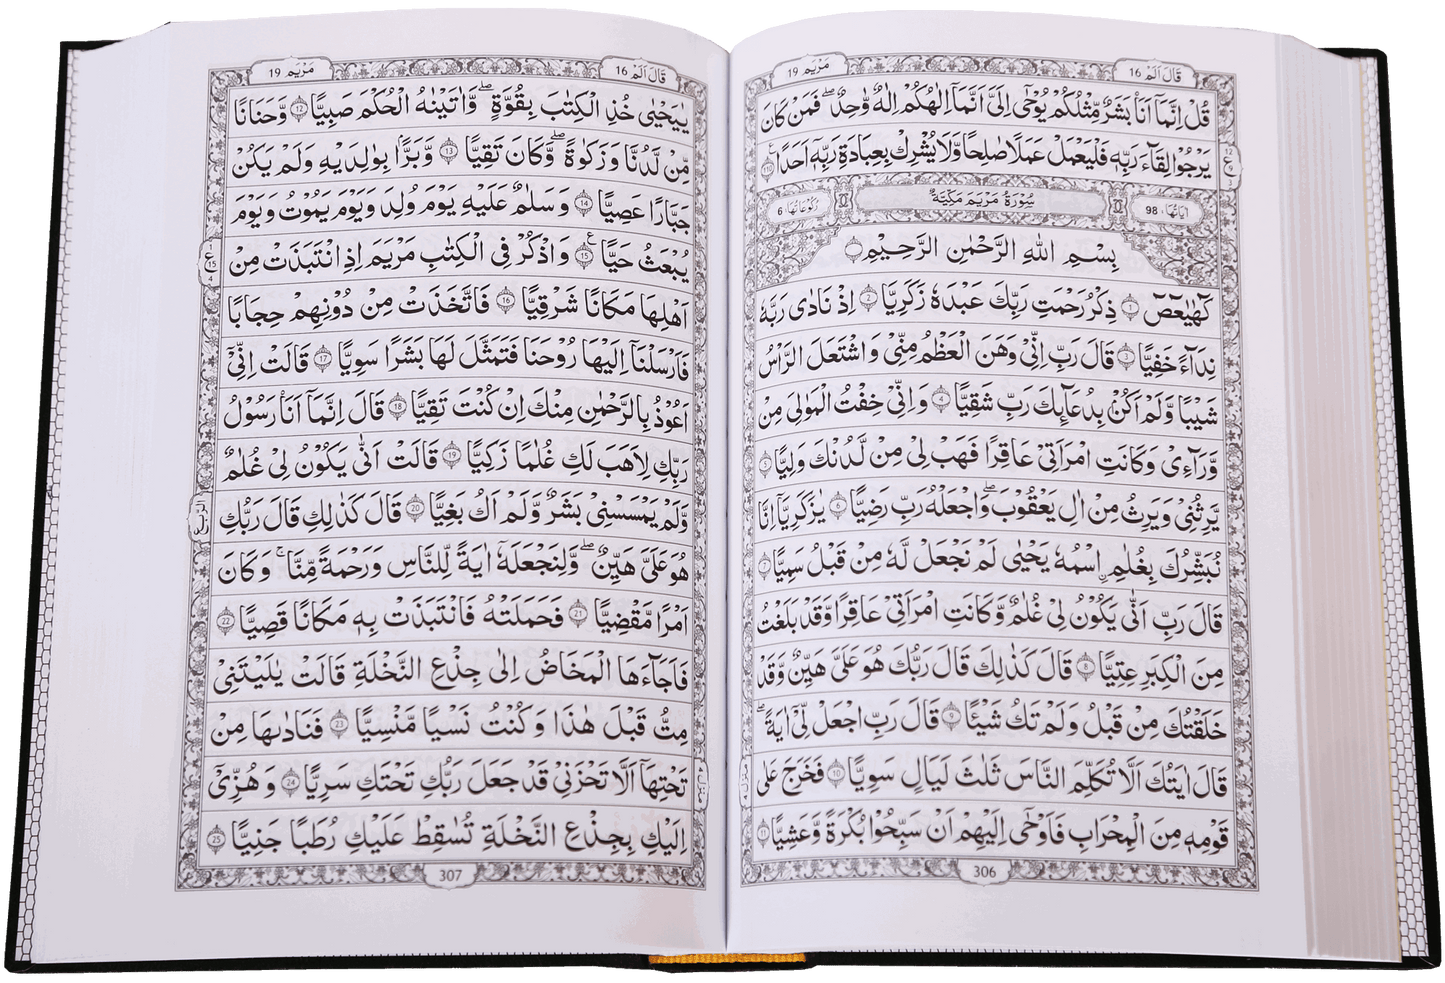 قَالَ اَلَمْ 16
مَرْيَم 19
قُلْ اِنَّمَاۤ اَنَا۠ بَشَرٌ مِّثْلُكُمْ يُوْحٰۤى اِلَىَّ اَنَّمَاۤ اِلٰهُكُمْ اِلٰهٌ وَّاحِدٌ ۖ فَمَنْ كَانَ
يَرْجُوْا لِقَآءَ رَبِّهٖ فَلْيَعْمَلْ عَمَلًا صَالِحًا وَّلَا يُشْرِكْ بِعِبَادَةِ رَبِّهٖۤ اَحَدًا
اٰيَاتُهَا، 98 سُوْرَةُ مَرْيَمَ مَكِّيَّةٌ رُكُوْعَاتُهَا، 6
بِسْمِ اللهِ الرَّحْمٰنِ الرَّحِيْمِ
كٓهٰيٰعٓصٓ 1 ذِكْرُ رَحْمَتِ رَبِّكَ عَبْدَهٗ زَكَرِيَّا 2 اِذْ نَادٰى رَبَّهٗ
نِدَآءً خَفِيًّا 3 قَالَ رَبِّ اِنِّىْ وَهَنَ الْعَظْمُ مِنِّىْ وَاشْتَعَلَ الرَّاْسُ
شَيْبًا وَّلَمْ اَكُنْۢ بِدُعَآئِكَ رَبِّ شَقِيًّا 4 وَاِنِّىْ خِفْتُ الْمَوَالِىَ مِنْ
وَّرَآءِىْ وَكَانَتِ امْرَاَتِىْ عَاقِرًا فَهَبْ لِىْ مِنْ لَّدُنْكَ وَلِيًّا 5
يَّرِثُنِىْ وَيَرِثُ مِنْ اٰلِ يَعْقُوْبَ ۖ وَاجْعَلْهُ رَبِّ رَضِيًّا 6 يٰزَكَرِيَّاۤ اِنَّا
نُبَشِّرُكَ بِغُلٰمِ اۨسْمُهٗ يَحْيٰى لَمْ نَجْعَلْ لَّهٗ مِنْ قَبْلُ سَمِيًّا 7
قَالَ رَبِّ اَنّٰى يَكُوْنُ لِىْ غُلٰمٌ وَّكَانَتِ امْرَاَتِىْ عَاقِرًا وَّقَدْ بَلَغْتُ
مِنَ الْكِبَرِ عِتِيًّا 8 قَالَ كَذٰلِكَ قَالَ رَبُّكَ هُوَ عَلَىَّ هَيِّنٌ وَّقَدْ
خَلَقْتُكَ مِنْ قَبْلُ وَلَمْ تَكُ شَيْئًا 9 قَالَ رَبِّ اجْعَلْ لِّىْۤ اٰيَةً ۖ
قَالَ اٰيَتُكَ اَلَّا تُكَلِّمَ النَّاسَ ثَلٰثَ لَيَالٍ سَوِيًّا 10 فَخَرَجَ عَلٰى
قَوْمِهٖ مِنَ الْمِحْرَابِ فَاَوْحٰۤى اِلَيْهِمْ اَنْ سَبِّحُوْا بُكْرَةً وَّعَشِيًّا 11
306
قَالَ اَلَمْ 16
مَرْيَم 19
يٰيَحْيٰى خُذِ الْكِتٰبَ بِقُوَّةٍ ۖ وَاٰتَيْنٰهُ الْحُكْمَ صَبِيًّا 12 وَّحَنَانًا
مِّنْ لَّدُنَّا وَزَكٰوةً ۖ وَّكَانَ تَقِيًّا 13 وَّبَرًّۢا بِوَالِدَيْهِ وَلَمْ يَكُنْ
جَبَّارًا عَصِيًّا 14 وَسَلٰمٌ عَلَيْهِ يَوْمَ وُلِدَ وَيَوْمَ يَمُوْتُ وَيَوْمَ
يُبْعَثُ حَيًّا 15 وَاذْكُرْ فِى الْكِتٰبِ مَرْيَمَ اِذِ انْتَبَذَتْ مِنْ
اَهْلِهَا مَكَانًا شَرْقِيًّا 16 فَاتَّخَذَتْ مِنْ دُوْنِهِمْ حِجَابًا
فَاَرْسَلْنَاۤ اِلَيْهَا رُوْحَنَا فَتَمَثَّلَ لَهَا بَشَرًا سَوِيًّا 17 قَالَتْ اِنِّىْۤ
اَعُوْذُ بِالرَّحْمٰنِ مِنْكَ اِنْ كُنْتَ تَقِيًّا 18 قَالَ اِنَّمَاۤ اَنَا۠ رَسُوْلُ
رَبِّكِ لِاَهَبَ لَكِ غُلٰمًا زَكِيًّا 19 قَالَتْ اَنّٰى يَكُوْنُ لِىْ غُلٰمٌ
وَّلَمْ يَمْسَسْنِىْ بَشَرٌ وَّلَمْ اَكُ بَغِيًّا 20 قَالَ كَذٰلِكِ قَالَ رَبُّكِ
هُوَ عَلَىَّ هَيِّنٌ ۖ وَّلِنَجْعَلَهٗۤ اٰيَةً لِّلنَّاسِ وَرَحْمَةً مِّنَّا ۚ وَكَانَ
اَمْرًا مَّقْضِيًّا 21 فَحَمَلَتْهُ فَانْتَبَذَتْ بِهٖ مَكَانًا قَصِيًّا 22
فَاَجَآءَهَا الْمَخَاضُ اِلٰى جِذْعِ النَّخْلَةِ قَالَتْ يٰلَيْتَنِىْ
مِتُّ قَبْلَ هٰذَا وَكُنْتُ نَسْيًا مَّنْسِيًّا 23 فَنَادٰىهَا مِنْ
تَحْتِهَاۤ اَلَّا تَحْزَنِىْ قَدْ جَعَلَ رَبُّكِ تَحْتَكِ سَرِيًّا 24 وَهُزِّىْۤ
اِلَيْكِ بِجِذْعِ النَّخْلَةِ تُسٰقِطْ عَلَيْكِ رُطَبًا جَنِيًّا 25
307